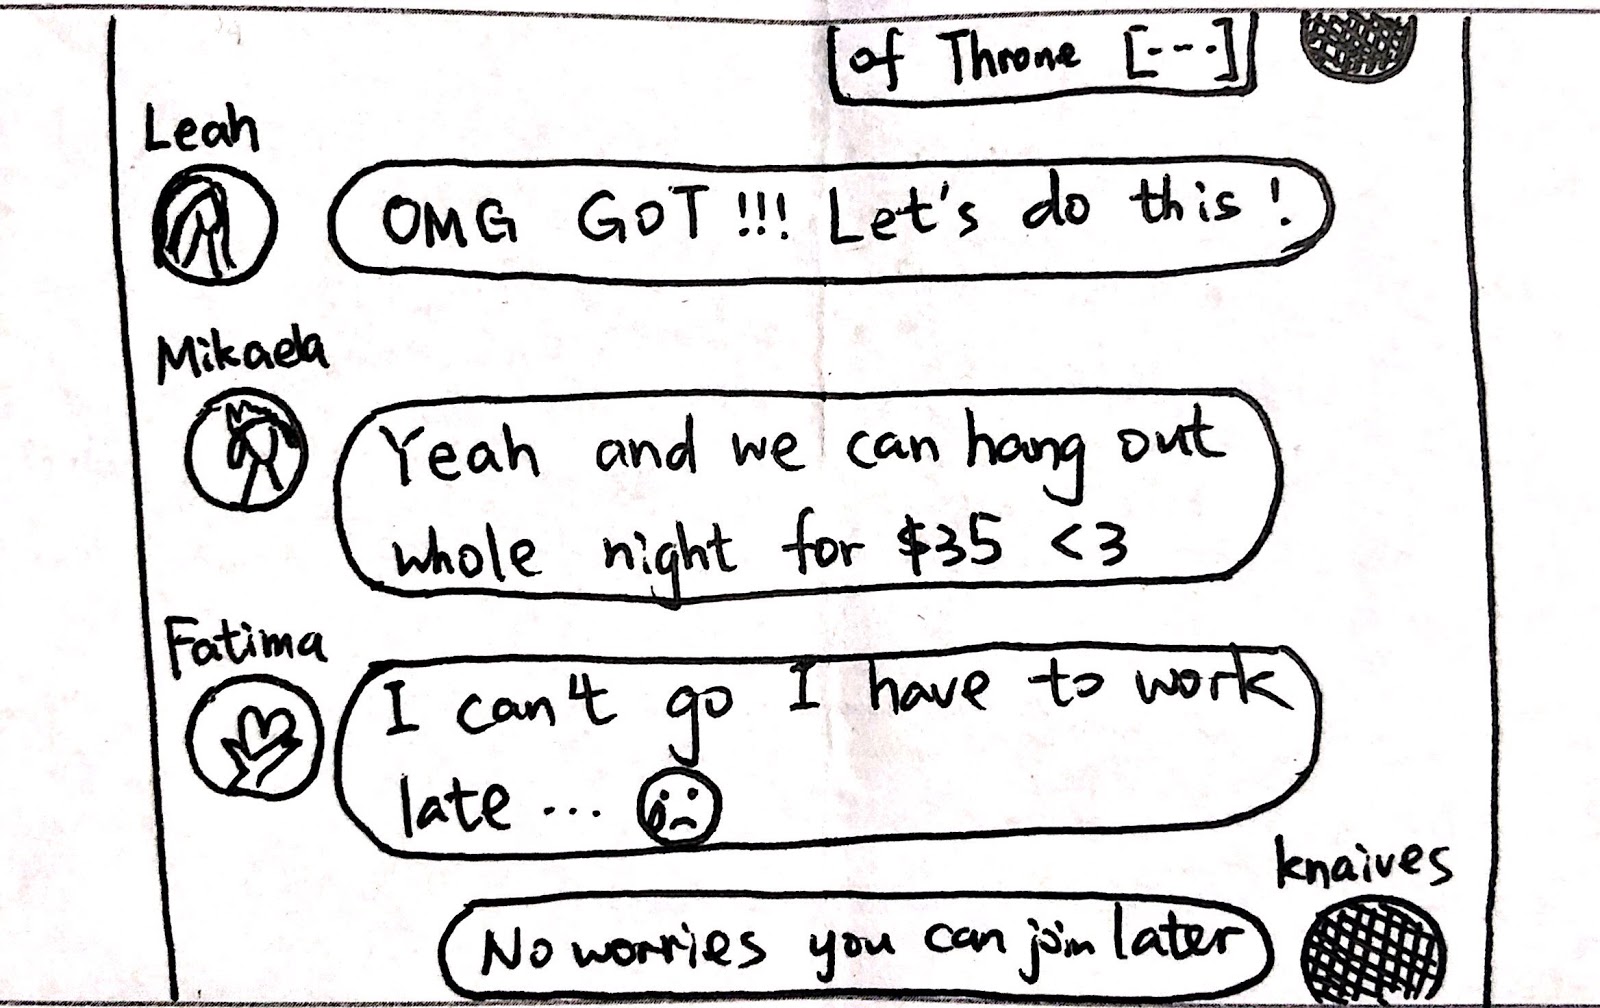 of Throne [----]
Leah
OMG GOT!!! Let's do this!
Mikaela
Yeah and we can hang out
whole night for $35 <3
Fatima
I can't go I have to work
late ...
knaives
No worries you can join later